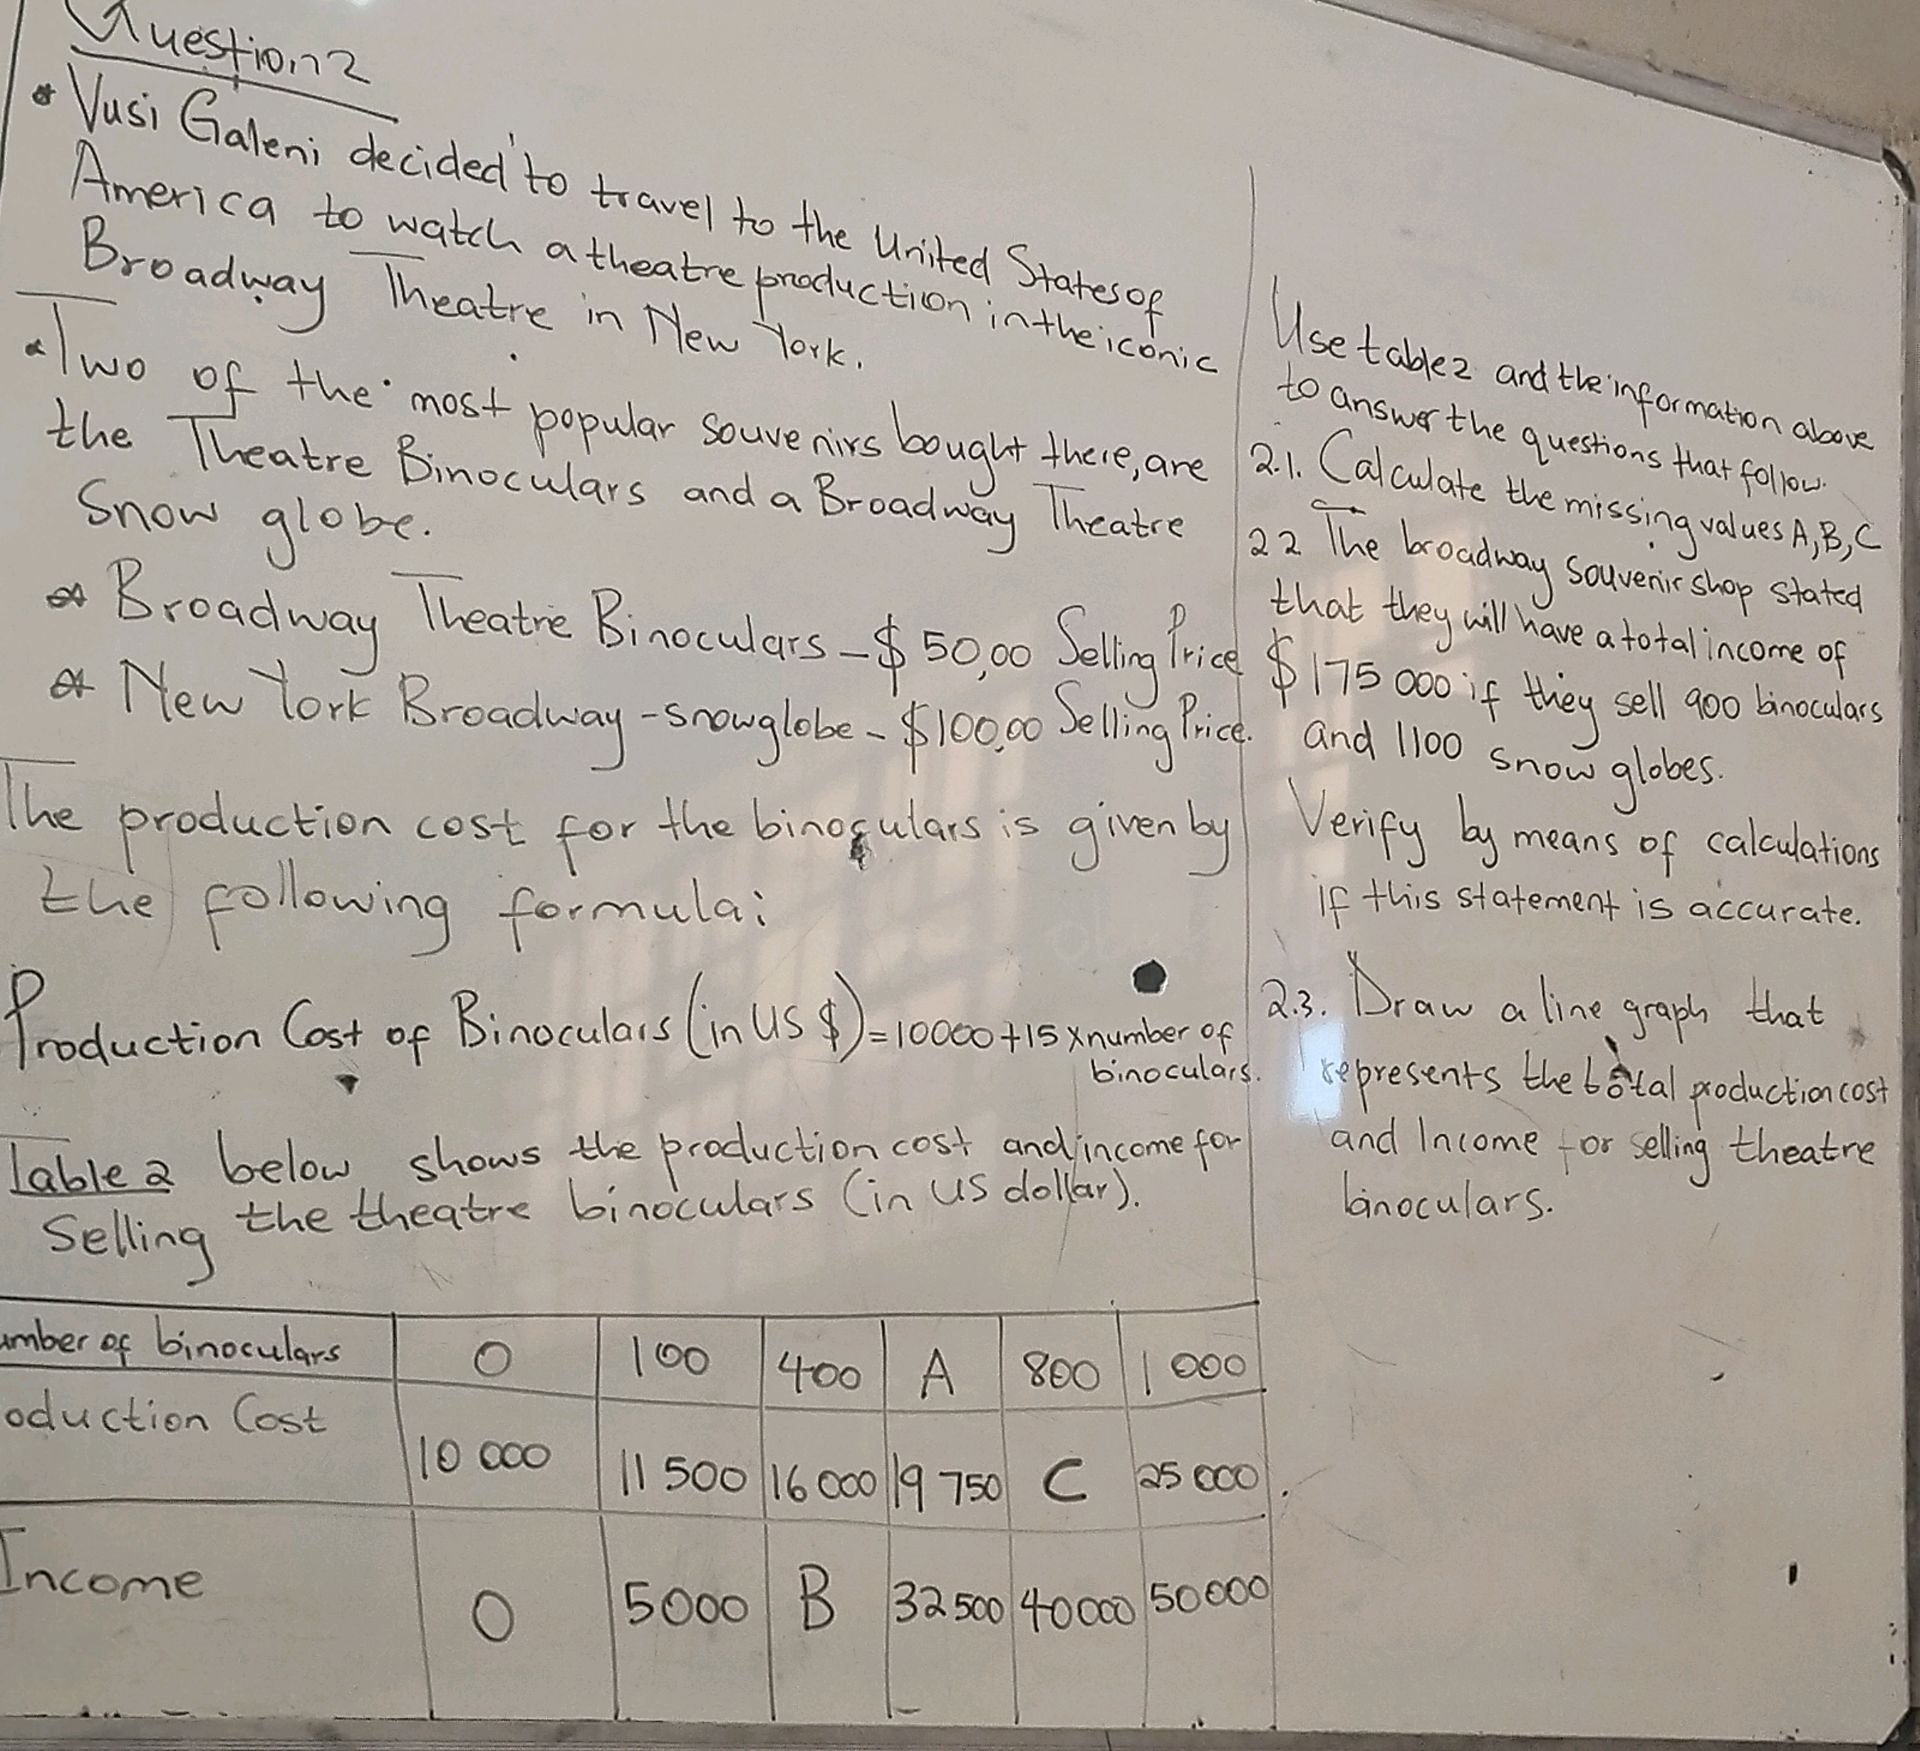 Question 2
* Vusi Galeni decided to travel to the United States of
America to watch a theatre production in the iconic
Broadway Theatre in New York.
* Two of the most popular souvenirs bought there, are
the Theatre Binoculars and a Broadway Theatre
Snow globe.
* Broadway Theatre Binoculars - $50,00 Selling Price
* New York Broadway - snowglobe - $100,00 Selling Price.
The production cost for the binoculars is given by
the following formula:
Production Cost of Binoculars (in US $) = 10000 + 15 x number of
binoculars.
Table 2 below shows the production cost and income for
Selling the theatre binoculars (in US dollar).
umber of binoculars 0 100 400 A 800 1 000
oduction Cost
10 000 11 500 16 000 19 750 C 25 000
Income 0 5000 B 32 500 40000 50000
Use table 2 and the information above
to answer the questions that follow.
2.1. Calculate the missing values A, B, C
2.2 The broadway souvenir shop stated
that they will have a total income of
$175 000 if they sell 900 binoculars
and 1100 snow globes.
Verify by means of calculations
if this statement is accurate.
2.3. Draw a line graph that
represents the total production cost
and Income for selling theatre
binoculars.